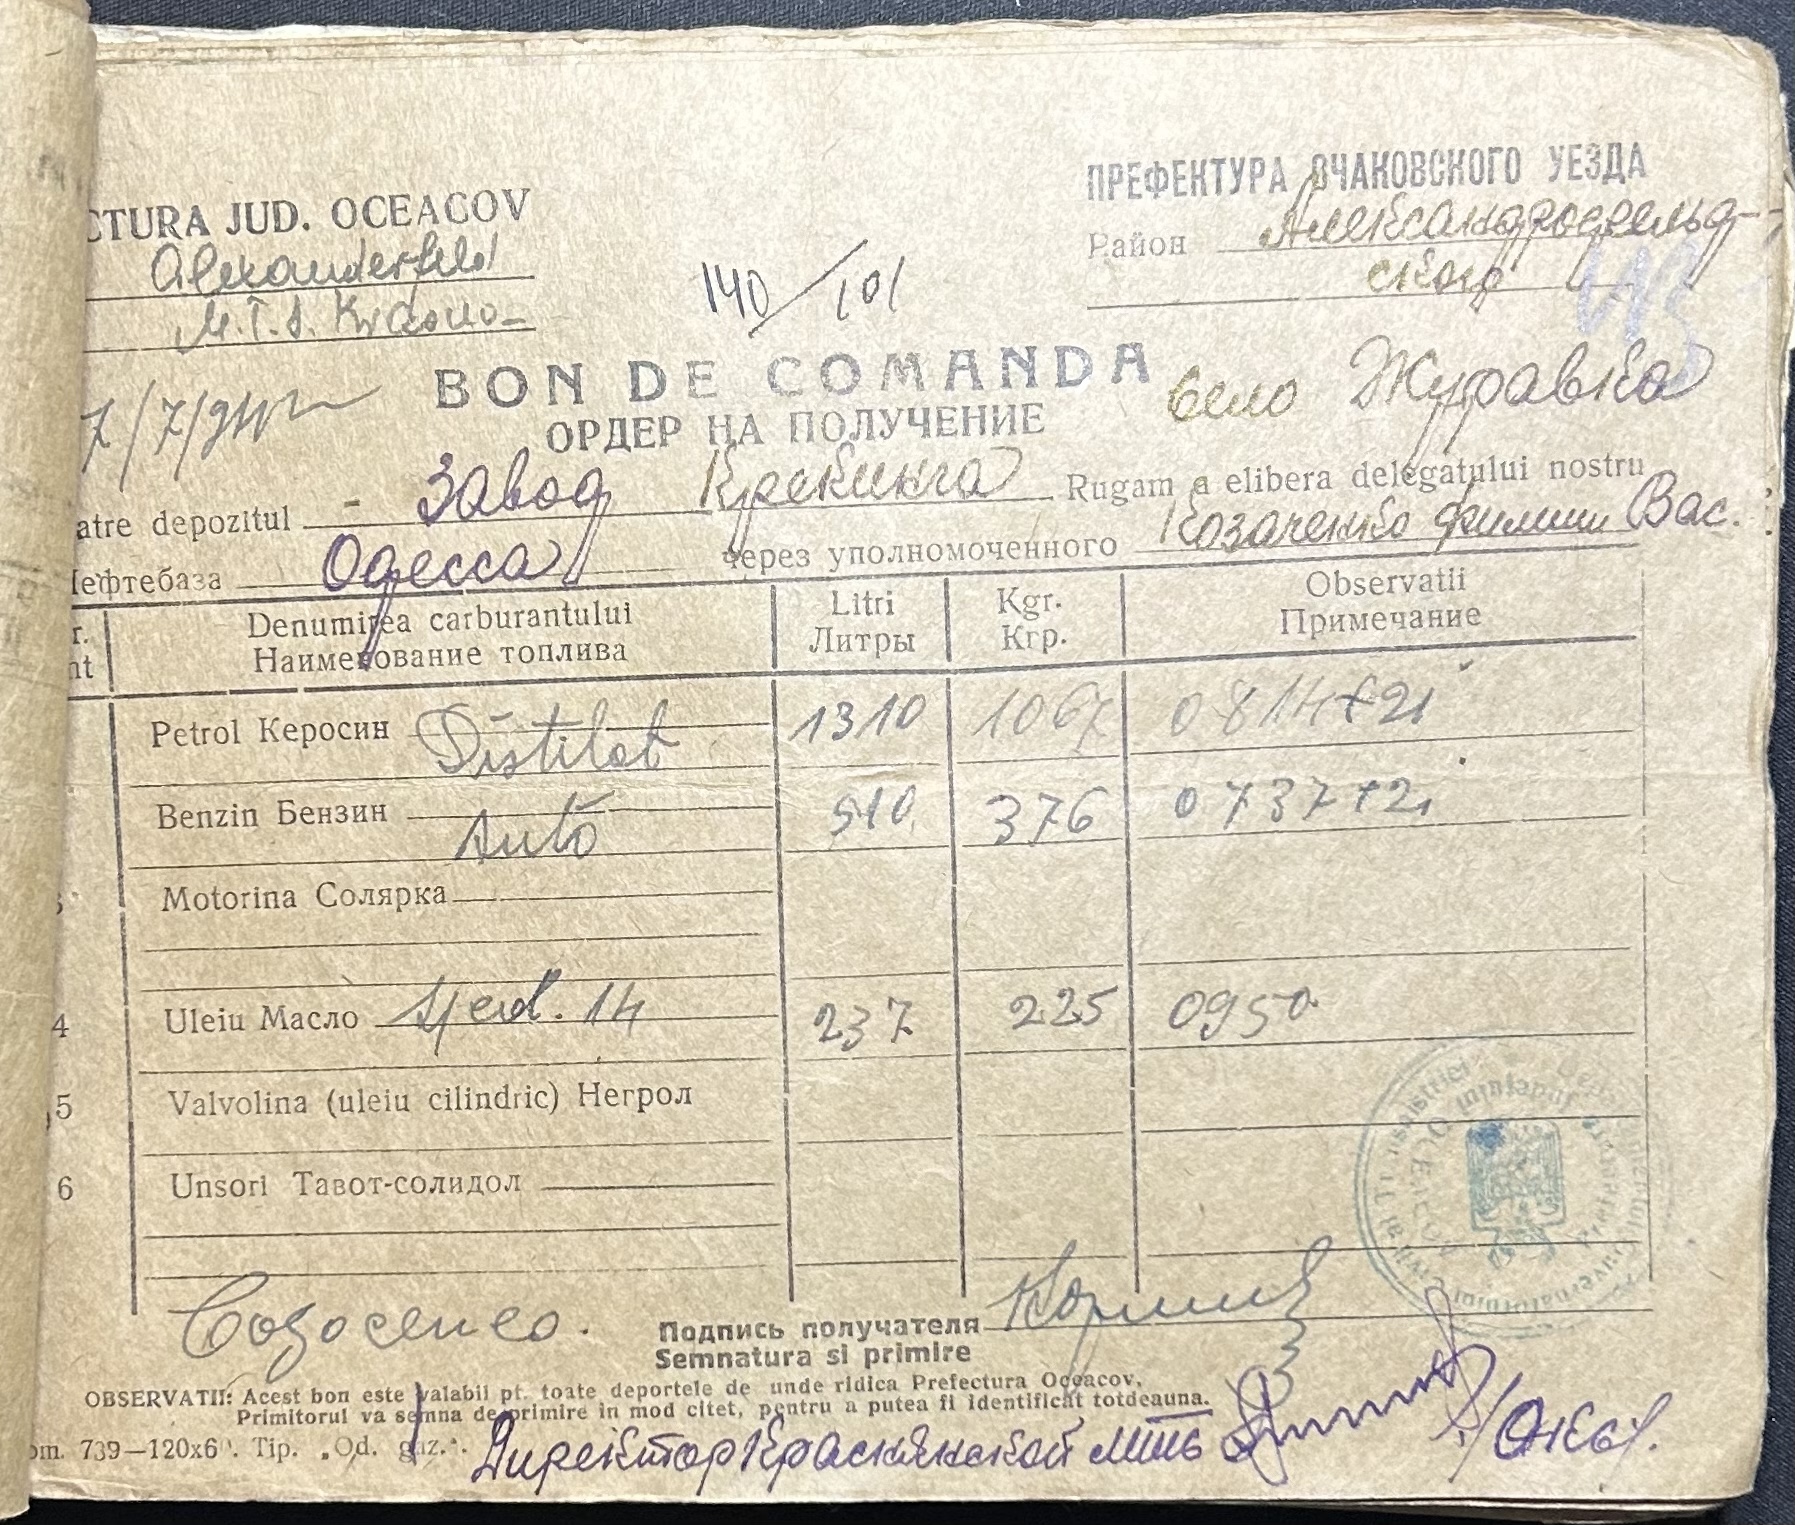 CTURA JUD. OCEACOV
Alexanderfeld
M.T.S. Krasno-
ПРЕФЕКТУРА ОЧАКОВСКОГО УЕЗДА
Район Александрофельд-
ского
140/101
7/7/
BON DE COMANDA
ОРДЕР НА ПОЛУЧЕНИЕ
село Журавка
atre depozitul - Завод Крекинга Rugam a elibera delegatului nostru
Нефтебаза Одесса через уполномоченного Козаченко Филипп Вас.
r.
nt
Denumirea carburantului
Наименование топлива
Litri
Литры
Kgr.
Кгр.
Observatii
Примечание
Petrol Керосин Distilat 1310 1067 0814+21
Benzin Бензин Auto 510 376 0737+21
3 Motorina Солярка
4 Uleiu Масло 14 237 225 0950
5 Valvolina (uleiu cilindric) Негрол
6 Unsori Тавот-солидол
Подпись получателя
Semnatura si primire
OBSERVATII: Acest bon este valabil pt. toate deportele de unde ridica Prefectura Oceacov,
Primitorul va semna de primire in mod citet, pentru a putea fi identificat totdeauna.
om. 739—120x6 . Tip. „Od. gaz.".
Директор Краснянской мтс